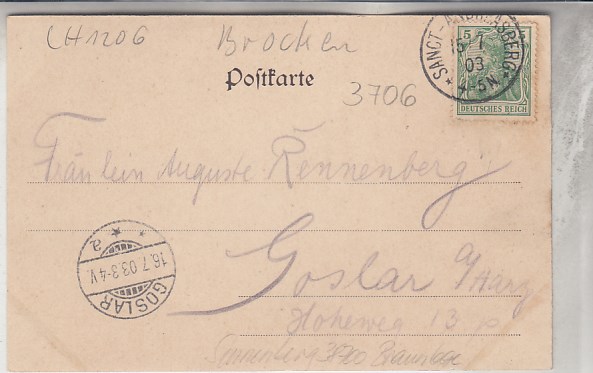 LH1206 Brocken
Postkarte
3706
SANCT-ANDREASBERG
15 7
03
4-5N
5 5
DEUTSCHES REICH
Fräulein Auguste Rennenberg
Goslar a/Harz
Hoheweg 13
Sonnenberg 3700 Braunlage
a
16.7.03.3-4V.
GOSLAR